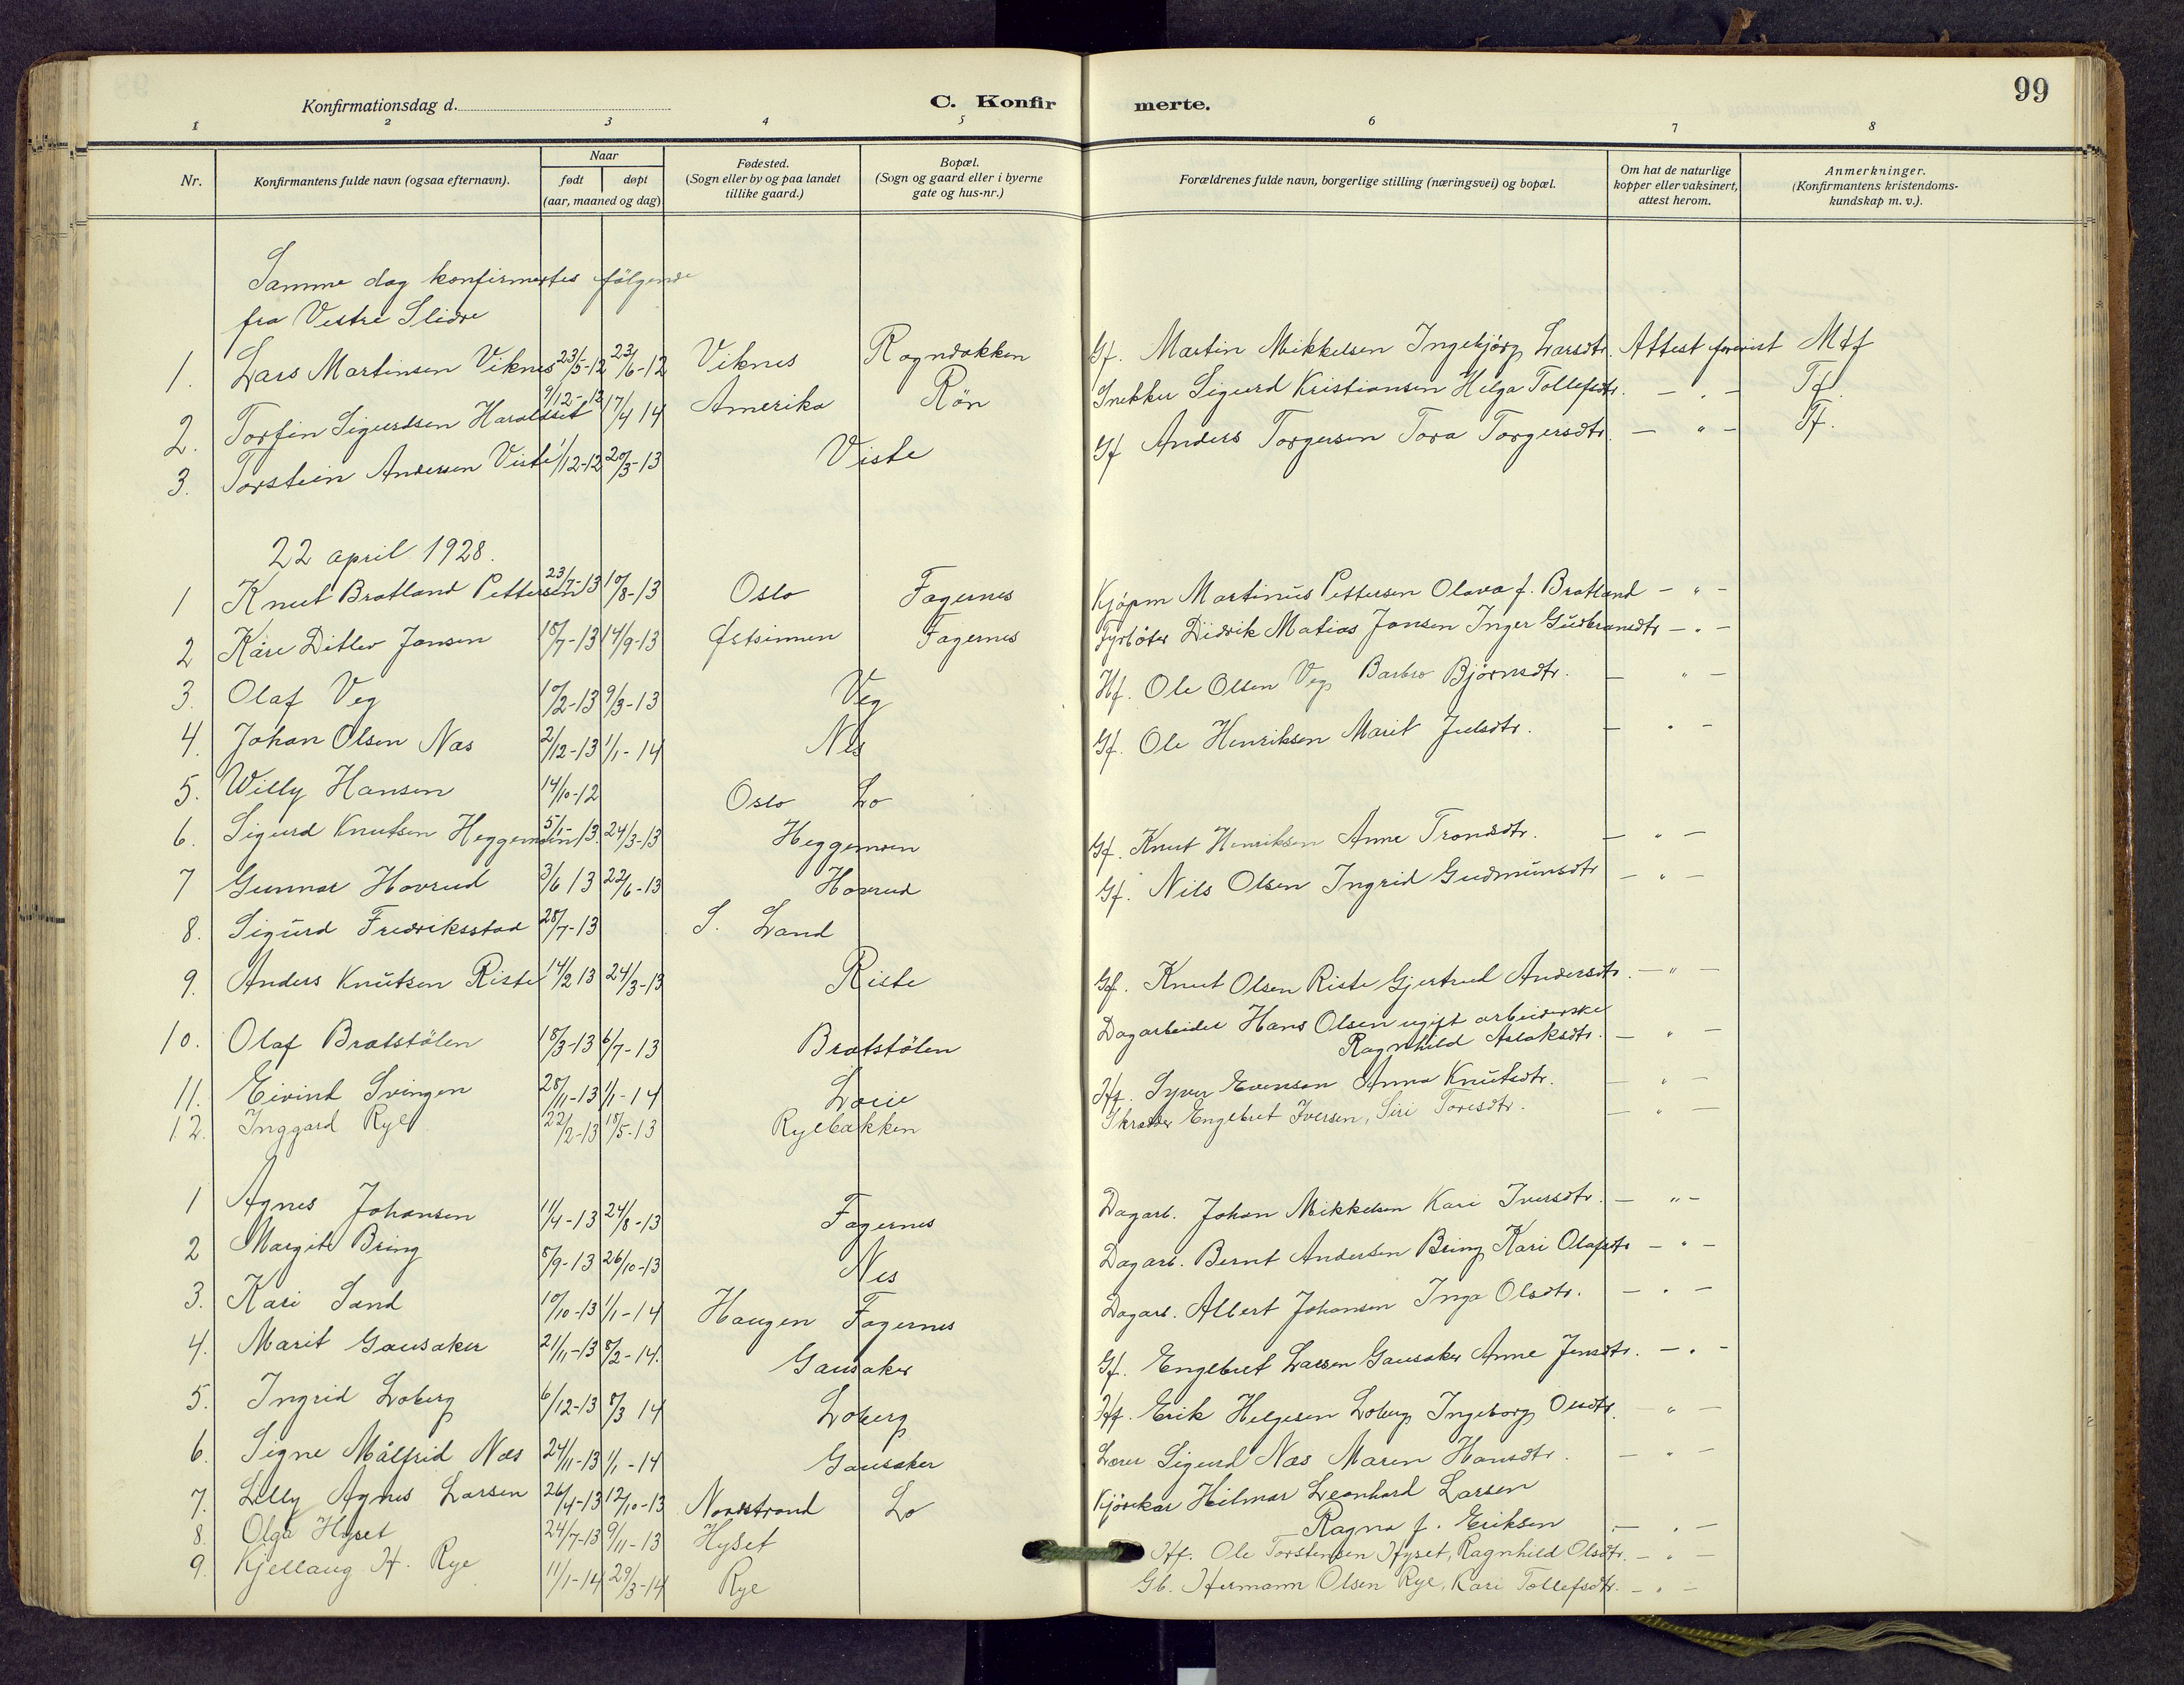 99
Konfirmationsdag d. C. Konfir merte.
1 2 3 4 5 6 7 8
Nr. Konfirmantens fulde navn (ogsaa efternavn). Naar født døpt (aar, maaned og dag) Fødested. (Sogn eller by og paa landet tillike gaard.) Bopæl. (Sogn og gaard eller i byerne gate og hus-nr.) Forældrenes fulde navn, borgerlige stilling (næringsvei) og bopæl. Om hat de naturlige kopper eller vaksinert, attest herom. Anmerkninger. (Konfirmantens kristendoms- kundskap m. v.).
Samme dag konfirmertes følgende
fra Vestre Slidre
1. Lars Martinsen Viknes 23/5-12 23/6-12 Viknes Rogndokken Gf. Martin Mikkelsen Ingebjørg Larsdtr. Attest forevist Mtf
2. Torfin Sigurdsen Haraldset 9/12-12 17/4 14 Amerika Røn Snekker Sigurd Kristiansen Helga Tollefsdtr. - " - Tf.
3. Torstein Andersen Viste 1/12-12 20/3-13 Viste Gf Anders Torgersen Tora Torgersdtr. - " - Tf.
22 april 1928.
1 Knut Bratland Pettersen 23/7-13 10/8-13 Oslo Fagernes Kjøpm Martinus Pettersen Olava f. Bratland - " -
2 Kåre Ditlev Jansen 18/7-13 14/9-13 Østsinnen Fagernes Fyrbøter Didrik Matias Jansen Inger Gudbransdtr - " -
3. Olaf Veg 10/2-13 9/3-13 Veg Hf. Ole Olsen Veg Barbro Bjørnsdtr. - " -
4. Johan Olsen Næs 2/12-13 1/1-14 Nes Gf. Ole Henriksen Marit Julsdtr. - " -
5. Willy Hansen 14/10-12 Oslo Lo
6. Sigurd Knutsen Heggemoen 5/1-13. 24/3-13 Heggemoen Gf. Knut Henriksen Anne Trondsdtr. - " -
7 Gunnar Hovrud 3/6 13 22/6-13 Hovrud Gf. Nils Olsen Ingrid Gudmunsdtr - " -
8. Sigurd Fredriksstad 28/7-13 S. Land
9. Anders Knutsen Riste 14/2 13 24/3-13 Riste Gf. Knut Olsen Riste Gjertrud Andersdtr. - " -
10. Olaf Bratstølen 18/3-13 6/7-13 Bratstølen Dagarbeider Hans Olsen ugift arbeiderske
Ragnhild Aslaksdtr. - " -
11. Eivind Svingen 28/11-13 1/1-14 Hf. Syver Evensen Anna Knutsdtr. - " -
12. Inggard Rye 22/2-13 18/5-13 Ryebakken Skrædder Engebret Iversen, Siri Toresdtr. - " -
1 Agnes Johansen 11/4-13 24/8-13 Fagernes Dagarb. Johan Mikkelsen Kari Iversdtr. - " -
2 Margit Bring 8/9-13 26/10-13 Nes Dagarb. Bernt Andersen Bring Kari Olafsdtr - " -
3. Kari Sand 10/10-13 1/1-14 Haugen Fagernes Dagarb. Albert Johansen Inga Olsdtr. - " -
4. Marit Gausaker 21/11-13 8/2-14. Gausaker Gf. Engebret Larsen Gausaker Anne Jensdtr. - " -
5. Ingrid Loberg 6/12-13 8/3 14 Loberg Hf. Erik Helgesen Loberg Ingeborg Olsdtr. - " -
6. Signe Målfrid Næs 24/11-13 1/1-14 Gausaker Lærer Sigurd Næs Maren Hansdtr. - " -
7. Lilly Agnes Larsen 26/4-13 12/10-13 Nordstrand Lo Kjørekar Hilmar Leonhard Larsen
Ragna f. Eriksen - " -
8. Olga Hyset 24/7-13 9/11-13 Hyset Hf. Ole Torstensen Hyset, Ragnhild Olsdtr. - " -
9. Kjellaug H. Rye 11/1-14 29/3-14 Rye Gb. Hermann Olsen Rye, Kari Tollefsdtr. - " -